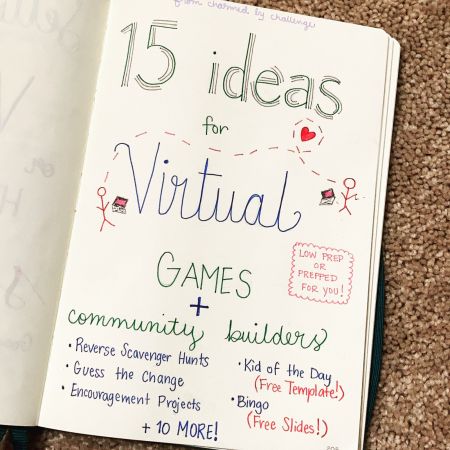 from charmed by challenge
15 ideas
for
Virtual
GAMES
+
community builders
LOW PREP
OR
PREPPED
FOR YOU!
• Reverse Scavenger Hunts
• Guess the Change
• Encouragement Projects
• Kid of the Day
(Free Template!)
• Bingo
(Free Slides!)
+ 10 MORE!